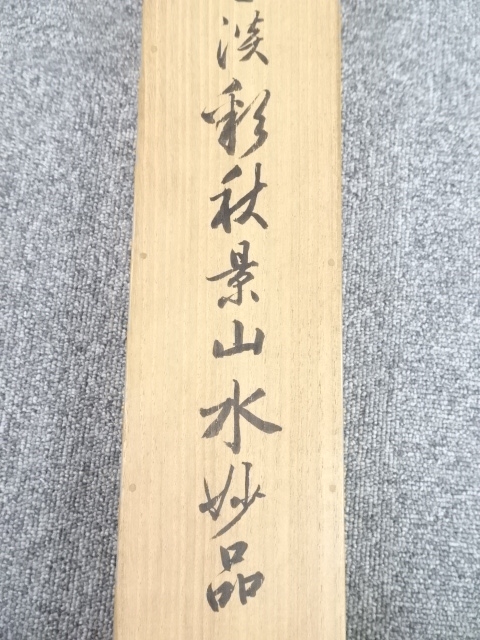 淡彩秋景山水妙品